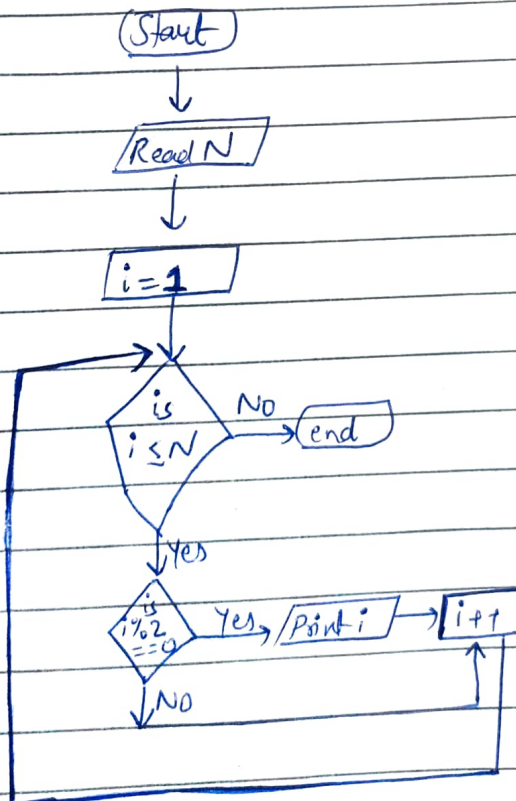 Start
Read N
i = 1
is
i ≤ N
No
end
Yes
is
i%2
==0
Yes
Print i
i++
No